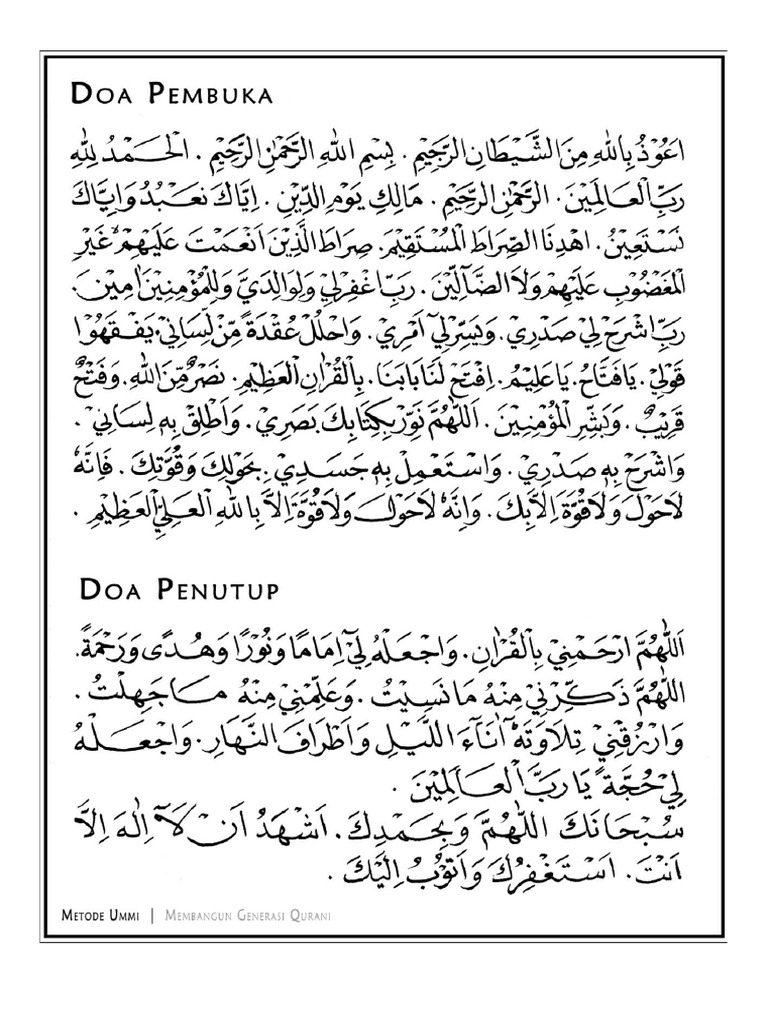 DOA PEMBUKA
اَعُوْذُ بِاللهِ مِنَ الشَّيْطَانِ الرَّجِيْمِ. بِسْمِ اللهِ الرَّحْمٰنِ الرَّحِيْمِ. الْحَمْدُ لِلّٰهِ
رَبِّ الْعَالَمِيْنَ. الرَّحْمٰنِ الرَّحِيْمِ. مَالِكِ يَوْمِ الدِّيْنِ. اِيَّاكَ نَعْبُدُ وَاِيَّاكَ
نَسْتَعِيْنُ. اهْدِنَا الصِّرَاطَ الْمُسْتَقِيْمَ. صِرَاطَ الَّذِيْنَ اَنْعَمْتَ عَلَيْهِمْ غَيْرِ
الْمَغْضُوْبِ عَلَيْهِمْ وَلاَ الضَّآلِّيْنَ. رَبِّ اغْفِرْلِيْ وَلِوَالِدَيَّ وَلِلْمُؤْمِنِيْنَ اٰمِيْنَ.
رَبِّ اشْرَحْ لِيْ صَدْرِيْ. وَيَسِّرْلِيْ اَمْرِيْ. وَاحْلُلْ عُقْدَةً مِّنْ لِّسَانِيْ. يَفْقَهُوْا
قَوْلِيْ. يَافَتَّاحُ. يَاعَلِيْمُ. اِفْتَحْ لَنَا بَابَنَا. بِالْقُرْاٰنِ الْعَظِيْمِ. نَصْرٌ مِّنَ اللهِ. وَفَتْحٌ
قَرِيْبٌ. وَبَشِّرِ الْمُؤْمِنِيْنَ. اَللّٰهُمَّ نَوِّرْ بِكِتَابِكَ بَصَرِيْ. وَاَطْلِقْ بِهٖ لِسَانِيْ.
وَاشْرَحْ بِهٖ صَدْرِيْ. وَاسْتَعْمِلْ بِهٖ جَسَدِيْ. بِحَوْلِكَ وَقُوَّتِكَ. فَاِنَّهٗ
لاَحَوْلَ وَلاَقُوَّةَ اِلاَّبِكَ. وَاِنَّهٗ لاَحَوْلَ وَلاَقُوَّةَ اِلاَّ بِاللهِ الْعَلِيِّ الْعَظِيْمِ.
DOA PENUTUP
اَللّٰهُمَّ ارْحَمْنِيْ بِالْقُرْاٰنِ. وَاجْعَلْهُ لِيْٓ اِمَامًا وَنُوْرًا وَهُدًى وَرَحْمَةً.
اَللّٰهُمَّ ذَكِّرْنِيْ مِنْهُ مَا نَسِيْتُ. وَعَلِّمْنِيْ مِنْهُ مَا جَهِلْتُ.
وَارْزُقْنِيْ تِلَاوَتَهٗٓ اٰنَآءَ اللَّيْلِ وَاَطْرَافَ النَّهَارِ. وَاجْعَلْهُ
لِيْ حُجَّةً يَا رَبَّ الْعَالَمِيْنَ.
سُبْحَانَكَ اللّٰهُمَّ وَبِحَمْدِكَ. اَشْهَدُ اَنْ لَآ اِلٰهَ اِلَّا
اَنْتَ. اَسْتَغْفِرُكَ وَاَتُوْبُ اِلَيْكَ.
METODE UMMI | MEMBANGUN GENERASI QURANI